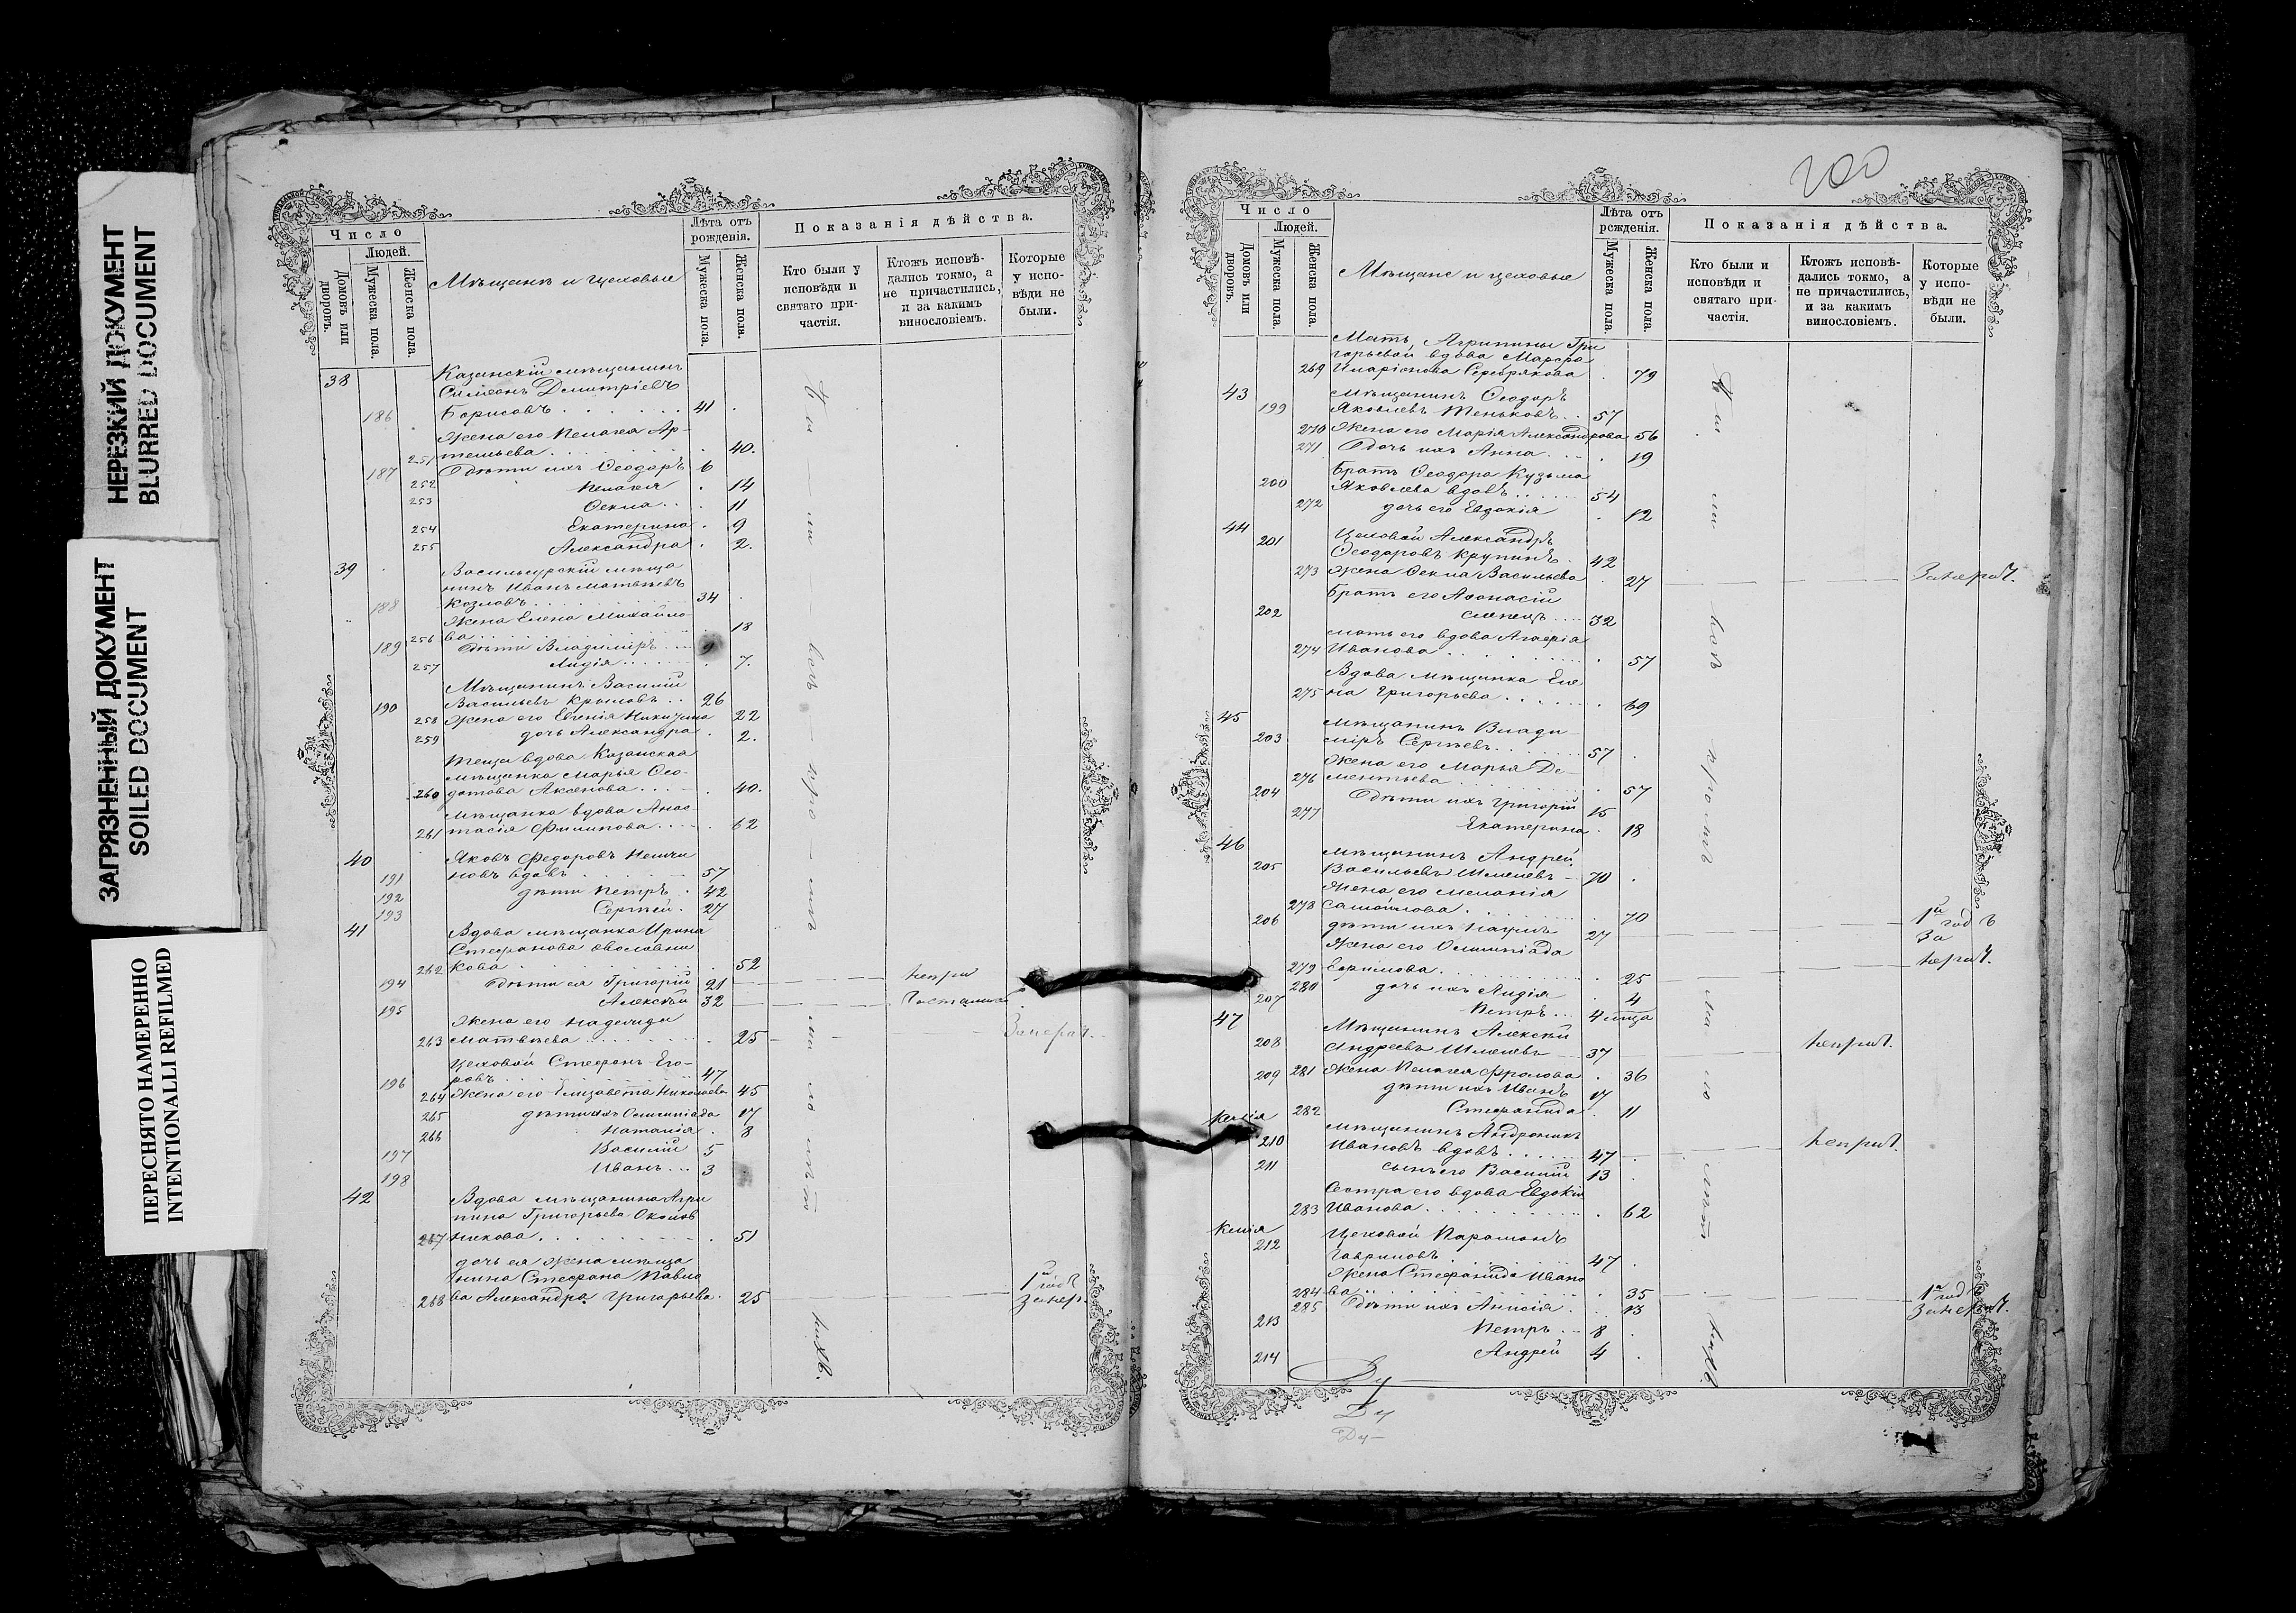 НЕРЕЗКИЙ ДОКУМЕНТ
BLURRED DOCUMENT
ЗАГРЯЗНЕННЫЙ ДОКУМЕНТ
SOILED DOCUMENT
ПЕРЕСНЯТО НАМЕРЕННО
INTENTIONALLI REFILMED
Число
Людей.
Домовъ или дворовъ.
Мужеска пола.
Женска пола.
Мѣщане и цеховые
Лѣта отъ рожденія.
Мужеска пола.
Женска пола.
Показанія дѣйства.
Кто были у исповѣди и святаго причастія.
Ктожъ исповѣдались токмо, а не причастились, и за какимъ винословіемъ.
Которые у исповѣди не были.
38 Казанскій мѣщанинъ
Симеонъ Димитріевъ
186 Борисовъ . . . . . . 41
Жена его Пелагея Ар-
251 темьева . . . . . . 40.
187 Дѣти ихъ Ѳеодоръ 6
252 Пелагея . 14
253 Ѳекла . . 11
254 Екатерина . 9
255 Александра . 2.
39 Васильсурскій мѣща
нинъ Иванъ Матвѣевъ
188 Козловъ . . . . . . 34
Жена Елена Михайло-
256 ва . . . . . . 18
189 Дѣти Владиміръ . . . 9
257 Лидія . . . . . 7.
Мѣщанинъ Василій
190 Васильевъ Крымовъ . . 26
258 Жена его Евгенія Никитина 22
259 дочь Александра . 2.
Теща вдова Казанская
мѣщанка Марья Ѳео-
260 дотова Аксенова . . . 40.
Мѣщанка вдова Анас
261 тасія Филипова . . . . 62
40 Яковъ Федоровъ
191 новъ вдовъ . . . . . 57
192 дѣти Петръ . 42
193 Сергѣй . 27
41 Вдова мѣщанка Ирина
Стефанова
262 кова . . . . . . 52
194 Дѣти ея Григорій 21
195 Алексѣй 32
Жена его Надежда
263 Матвѣева . . . . . 25
Цеховой Стефанъ Его-
196 ровъ . . . . . . 47
264 Жена его Елизавета Николаева 45
265 дѣти ихъ Олимпіада 17
266 Наталія . 8
197 Василій 5
198 Иванъ . . . 3
42 Вдова мѣщанина Агри
пина Григорьева
267 никова . . . . . . 51
дочь ея жена мѣща
нина Стефана Павло
268 ва Александра Григорьева . 25
1й годъ
200
Число
Людей.
Домовъ или дворовъ.
Мужеска пола.
Женска пола.
Мѣщане и цеховые
Лѣта отъ рожденія.
Мужеска пола.
Женска пола.
Показанія дѣйства.
Кто были и исповѣди и святаго причастія.
Ктожъ исповѣдались токмо, а не причастились, и за какимъ винословіемъ.
Которые у исповѣди не были.
Мать, Агрипины Гри
горьевой вдова Марфа
269 Иларіонова Серебрякова . 79
43 Мѣщанинъ Ѳеодоръ
199 Яковлевъ Теньковъ . . 57
270 Жена его Марія Александрова 56
271 Дочь ихъ Анна . . . 19
Братъ Ѳеодора Кузьма
200 Яковлевъ вдовъ . . . . 54
272 дочь его Евдокія . 12
44 Цеховой Александръ
201 Ѳеодоровъ Крупинъ . 42
273 Жена Ѳекла Васильева . 27
Братъ его Аѳонасій
202 слѣпецъ . . . . 32
мать его вдова
274 Иванова . . . . . . 57
Вдова мѣщанка Еле
275 на Григорьева . . . . . 69
45 Мѣщанинъ Влади
203 міръ Сергѣевъ . . . . 57
Жена его Марья Де-
276 ментьева . . . . . . 57
204 Дѣти ихъ Григорій 15
277 Екатерина . 18
46 Мѣщанинъ Андрей
205 Васильевъ Шмелевъ - 70
Жена его Меланія
278 Самойлова . . . . . . 70
206 дѣти ихъ Наумъ 27
Жена его Олимпіада
279 Ефимова . . . . . . 25
280 дочь ихъ Лидія . 4
207 Петръ . . . 4 мѣсца
47 Мѣщанинъ Алексѣй
208 Андреевъ Шмелевъ 37
281 Жена Пелагея Фролова . 36
209 дѣти ихъ Иванъ 17
282 Стефанида . 11
Келія Мѣщанинъ Андроникъ
210 Ивановъ вдовъ . . . . . 47
211 сынъ его Василій 13
Сестра его вдова Евдокія
283 Иванова . . . . . . 62
Келія Цеховой Парамонъ
212 Гавриловъ . . . . . 47
Жена Стефанида Ивано
284 ва . . . . . . 35
285 Дѣти ихъ Анисія . . 13
213 Петръ . . . 8
214 Андрей 4
1й годъ